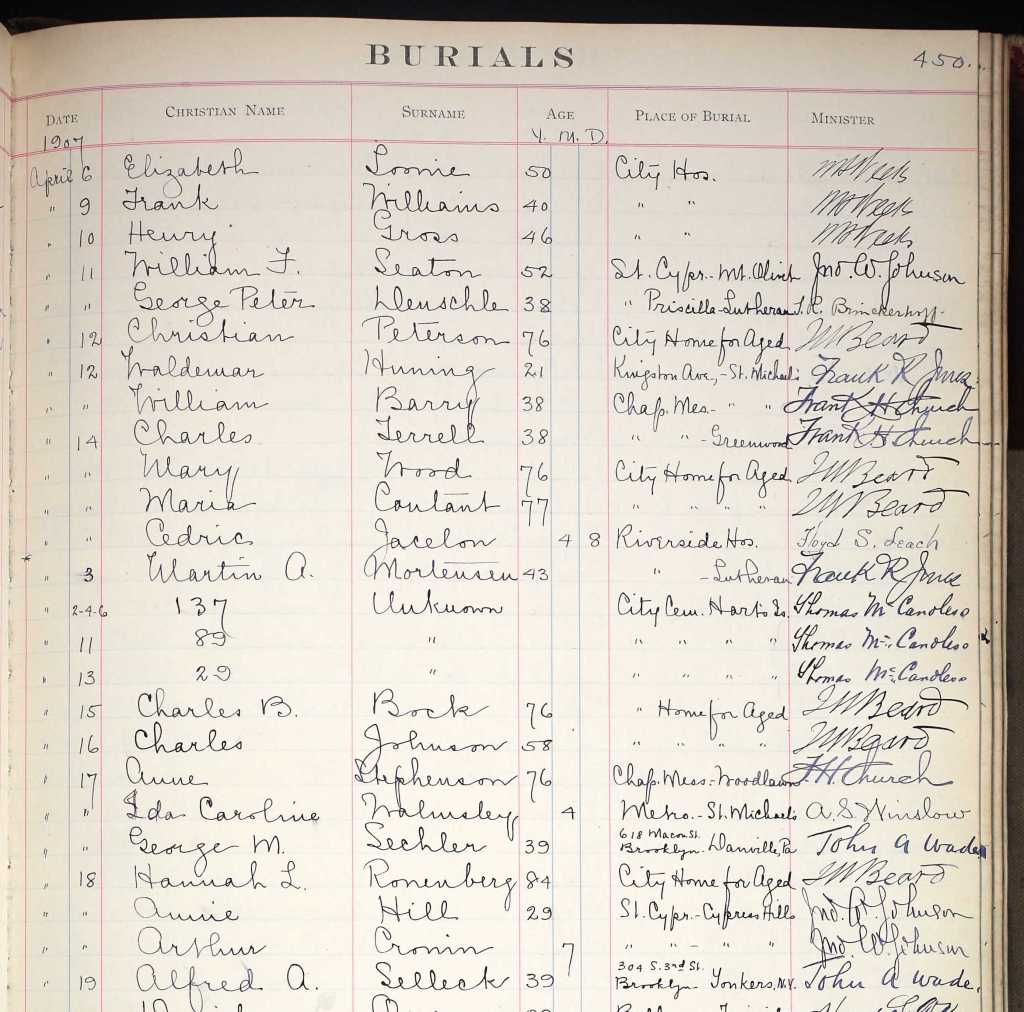 BURIALS 450.
DATE CHRISTIAN NAME SURNAME AGE PLACE OF BURIAL MINISTER
1907 Y. M. D.
April 6 Elizabeth Loonie 50 City Hos.
" 9 Frank Williams 40 " "
" 10 Henry Gross 46 " "
" 11 William F. Seaton 52 St. Cypr.- Mt. Olivt Jno. W. Johnson
" " George Peter Deuschle 38 " Priscilla-Lutheran T. R. Brinckerhoff
" 12 Christian Peterson 76 City Home for Aged Beard
" 12 Waldemar Huning 21 Kingston Ave., - St. Michael's Frank R Jones
" " William Barry 38 Chap. Mes- " " Frank H Church
" 14 Charles Terrell 38 " " - Greenwood Frank H. Church
" " Mary Wood 76 City Home for Aged Beard
" " Maria Coutant 77 " " " " Beard
" " Cedric Jacelon 4 8 Riverside Hos. Floyd S. Leach
" 3 Martin A. Mortensen 43 " - Lutheran Frank R Jones
" 2-4-6 137 Unknown City Cem. Hart's Is. Thomas McCandless
" 11 89 " " " " " Thomas McCandless
" 13 29 " " " " " Thomas McCandless
" 15 Charles B. Bock 76 " Home for Aged Beard
" 16 Charles Johnson 58 " " " " Beard
" 17 Anne Stephenson 76 Chap. Mess.- Woodlawn F. H. Church
" " Ida Caroline Walmsley 4 Metro. - St. Michael's A. S. Winslow
" " George M. Sechler 39 618 Macon St. Brooklyn - Danville, Pa John A Wade
" 18 Hannah L. Ronenberg 84 City Home for Aged Beard
" " Annie Hill 29 St. Cypr.- Cypress Hills Jno. W. Johnson
" " Arthur Cronin 7 " " - " " Jno. W. Johnson
" 19 Alfred A. Selleck 39 304 S. 3rd St. Brooklyn - Yonkers, N.Y. John A Wade.